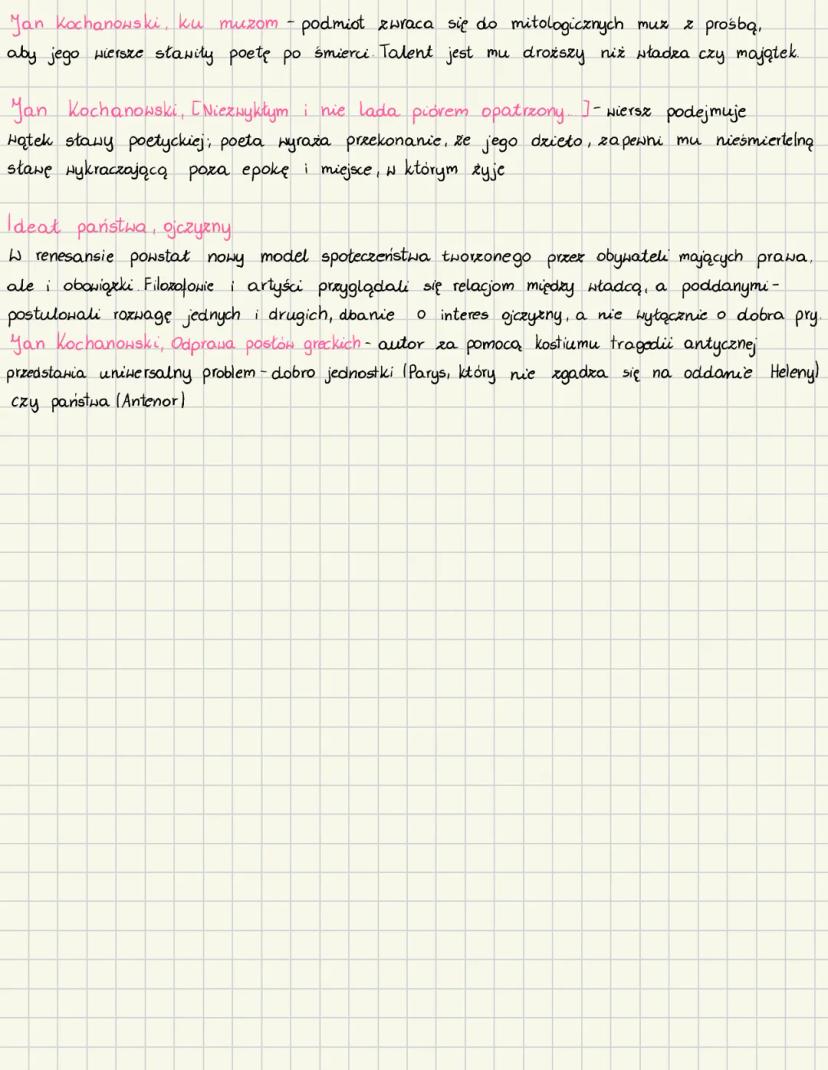 Jan Kochanowski, ku muzom - podmiot zwraca się do mitologicznych muz z prośbą,
aby jego wiersze sławiły poetę po śmierci. Talent jest mu droższy niż władza czy majątek.
Jan Kochanowski, [Niezwykłym i nie lada piórem opatrzony...] - wiersz podejmuje
wątek sławy poetyckiej; poeta wyraża przekonanie, że jego dzieło, zapewni mu nieśmiertelną
sławę wykraczającą poza epokę i miejsce, w którym żyje
Ideał państwa, ojczyzny
W renesansie powstał nowy model społeczeństwa tworzonego przez obywateli mających prawa,
ale i obowiązki. Filozofowie i artyści przyglądali się relacjom między władcą, a poddanymi -
postulowali rozwagę jednych i drugich, dbanie o interes ojczyzny, a nie wyłącznie o dobra pry.
Jan Kochanowski, Odprawa posłów greckich - autor za pomocą kostiumu tragedii antycznej
przedstawia uniwersalny problem - dobro jednostki (Parys, który nie zgadza się na oddanie Heleny)
czy państwa (Antenor)